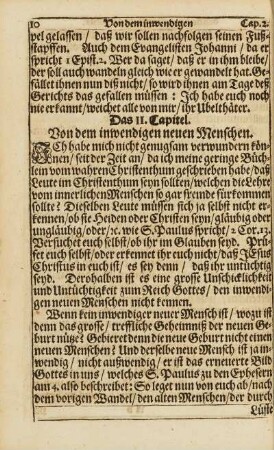 10 Von dem inwendigen Cap. 2.
pel gelassen / daß wir sollen nachfolgen seinen Fuß-
stapffen. Auch dem Evangelisten Johanni / da er
spricht 1 Epist. 2. Wer da saget / daß er in ihm bleibe /
der soll auch wandeln gleich wie er gewandelt hat. Ge-
fället ihnen nun diß nicht / so wird ihnen am Tage deß
Gerichts das gefallen müssen : Ich habe euch noch
nie erkannt / weichet alle von mir / ihr Ubelthäter.
Das II. Capitel.
Von dem inwendigen neuen Menschen.
Ich habe mich nicht genugsam verwundern kön-
nen / seit der Zeit an / da ich meine geringe Büch-
lein vom wahren Christenthum geschrieben habe / daß
Leute im Christenthum seyn sollten / welchen die Lehre
vom innerlichen Menschen so gar fremde fürkommen
sollte ? Dieselben Leute müssen sich ja selbst nicht er-
kennen / ob sie Heiden oder Christen seyn / gläubig oder
ungläubig / oder / ꝛc. wie S. Paulus spricht / 2 Cor. 13.
Versuchet euch selbst / ob ihr im Glauben seyd. Prü-
fet euch selbst / oder erkennet ihr euch nicht / daß JEsus
Christus in euch ist / es sey denn / daß ihr untüchtig
seyd. Derohalben ist es eine grosse Unschicklichkeit
und Untüchtigkeit zum Reich Gottes / den inwendi-
gen neuen Menschen nicht kennen.
Wenn kein inwendiger neuer Mensch ist / wozu ist
denn das grosse / treffliche Geheimniß der neuen Ge-
burt nütze ? Gebieret denn die neue Geburt nicht einen
neuen Menschen ? Und derselbe neue Mensch ist ja in-
wendig / nicht außwendig / er ist das erneuerte Bild
Gottes in uns / welches S. Paulus zu den Ephesern
am 4. also beschreibet : So leget nun von euch ab / nach
dem vorigen Wandel / den alten Menschen / der durch
Lüste